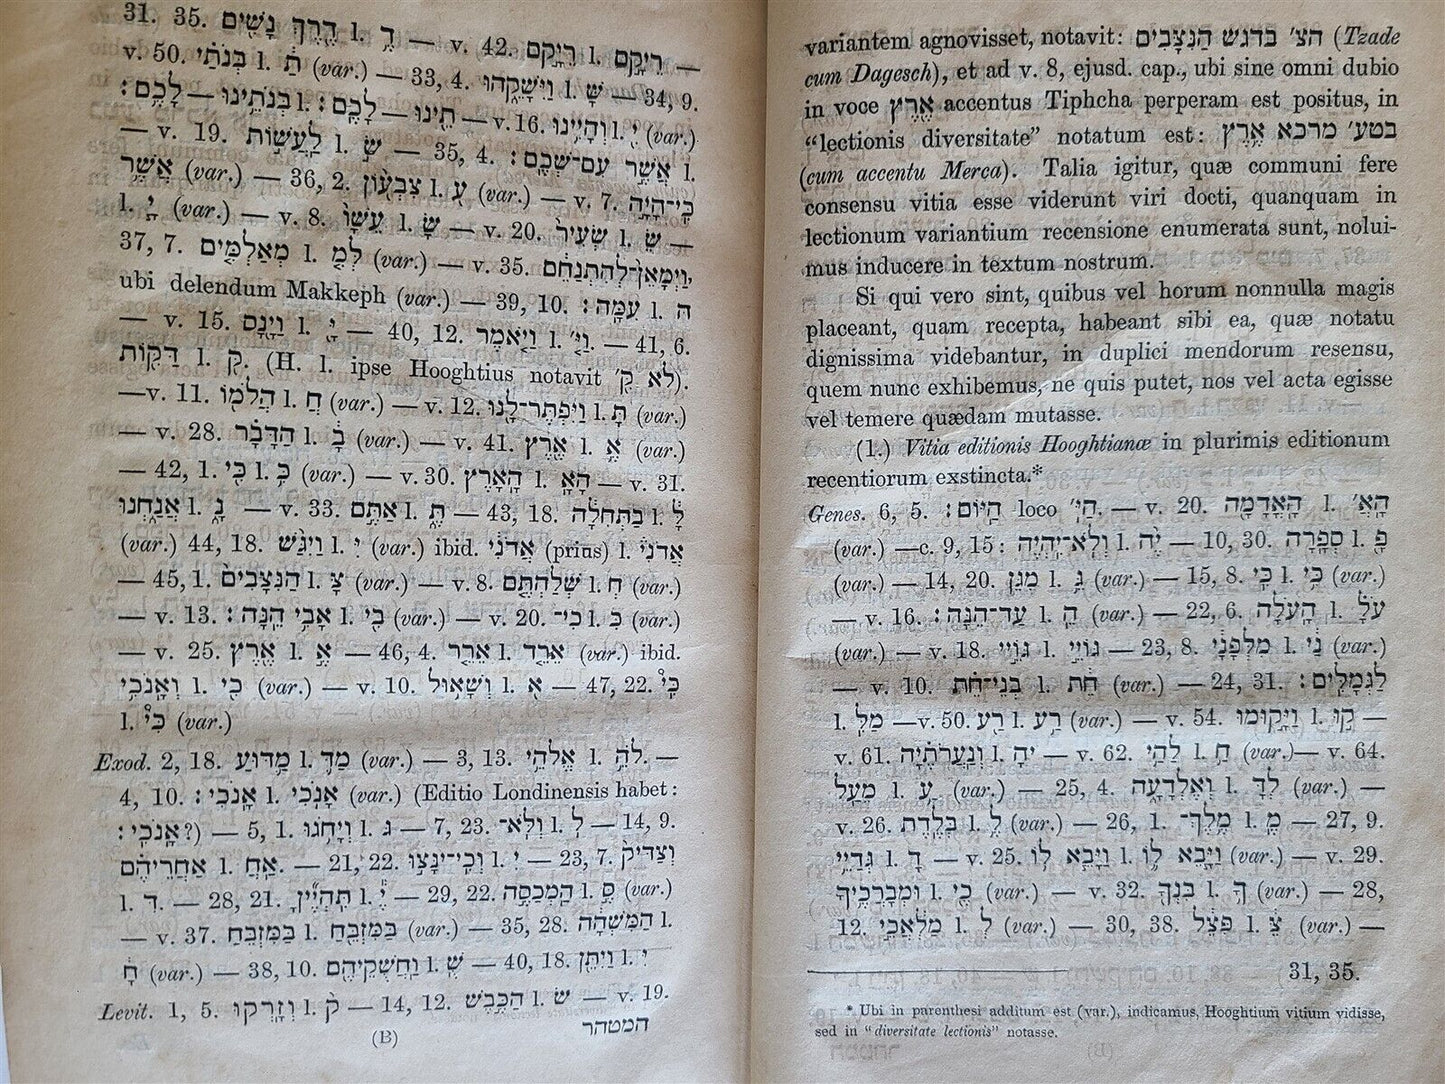 variantem agnovisset, notavit: הצ׳ בדגש הַנִּצָּבִים (Tzade
cum Dagesch), et ad v. 8, ejusd. cap., ubi sine omni dubio
in voce אֶרֶץ accentus Tiphcha perperam est positus, in
“lectionis diversitate” notatum est: בטע׳ מרכא אֶרֶץ
(cum accentu Merca). Talia igitur, quæ communi fere
consensu vitia esse viderunt viri docti, quanquam in
lectionum variantium recensione enumerata sunt, nolui-
mus inducere in textum nostrum.
Si qui vero sint, quibus vel horum nonnulla magis
placeant, quam recepta, habeant sibi ea, quæ notatu
dignissima videbantur, in duplici mendorum resensu,
quem nunc exhibemus, ne quis putet, nos vel acta egisse
vel temere quædam mutasse.
(1.) Vitia editionis Hooghtianæ in plurimis editionum
recentiorum exstincta.*
Genes. 6, 5. הַיּוֹם׃ loco הַי׳. — v. 20. הָאֲדָמָה l. הָאֲ׳
(var.) —c. 9, 15: וְלֹא־יִהְיֶה l. יֶה — 10, 30. סְפָרָה l. פָ
(var.) — 14, 20. מִגֵּן l. גֵּ (var.) — 15, 8. כִּי l. כִּי (var.)
— v. 16. עַד־הֵנָּה׃ l. הֵ (var.) — 22, 6. הָעֹלָה l. עֹלָ
(var.) — v. 18. גּוֹיֵי l. גּוֹיֵי — 23, 8. מִלְּפָנַי l. נַי (var.)
— v. 10. בְּנֵי־חֵת l. חֵת (var.) — 24, 31. לַגְּמַלִּים׃
l. מַלִּ —v. 50. רַע l. רַע (var.) — v. 54. וַיָּקוּמוּ l. קוּ —
v. 61. וְנַעֲרֹתֶיהָ l. יה — v. 62. לַחַי l. חַ (var.)— v. 64.
מֵעַל l. עַ (var.) — 25, 4. וְאֶלְדָּעָה l. לְדָּ (var.) —
v. 26. בְּלֶדֶת l. לֶ (var.) — 26, 1. מֶלֶךְ־ l. מֶ — 27, 9.
גְּדָיֵי l. דָ — v. 25. וַיָּבֵא לוֹ l. וַיָּבֵא לוֹ (var.) — v. 29.
וּמְבָרֲכֶיךָ l. כֶי (var.) — v. 32. בִּנְךָ l. ךָ (var.) — 28,
12. מַלְאֲכֵי l. לְ (var.) — 30, 38. פִּצֵּל l. צֵּ (var.) —
31, 35.
* Ubi in parenthesi additum est (var.), indicamus, Hooghtium vitium vidisse,
sed in “diversitate lectionis” notasse.
31. 35. דֶרֶךְ נָשִׁים l. דֶ — v. 42. רֵיקָם l. רֵיקָם —
v. 50. בְּנֹתַי l. תַ (var.) — 33, 4. וַיִּשָּׁקֵהוּ l. שָּׁ — 34, 9.
לָכֶם׃—בְּנֹתֵינוּ l. לָכֶם׃—תֵינוּ —v. 16. וְהָיִינוּ l. יִ (var.)
— v. 19. לַעֲשׂוֹת l. שׂ — 35, 4. עִם־שְׁכֶם׃ אֲשֶׁר l.
אֲשֶׁר (var.) — 36, 2. צִבְעוֹן l. ע (var.) — v. 7. כִּי־הָיָה
l. יָ (var.) — v. 8. עֵשָׂו l. שָׂ — v. 20. שֵׂעִיר l. שֵׂ —
37, 7. מְאַלְּמִים l. לְּמִ (var.) — v. 35. וַיְמָאֵן־לְהִתְנַחֵם
ubi delendum Makkeph (var.) — 39, 10. עִמָּהּ׃ l. ה
— v. 15. וַיָּנָס l. יָ — 40, 12. וַיֹּאמֶר l. וַיֹּ׳ — 41, 6.
דַּקּוֹת l. ק. (H. l. ipse Hooghtius notavit לא ק׳).
—v. 11. חֲלֹמוֹ l. חֲ (var.) — v. 12. וַיִּפְתָּר־לָנוּ l. תָּ (var.)
— v. 28. הַדָּבָר l. בָ (var.) — v. 41. אֶרֶץ l. אֶ (var.)
— 42, 1. כִּי l. כִּ (var.) — v. 30. הָאָרֶץ l. הָאָ — v. 31.
אֲנָחְנוּ l. נָ — v. 33. אַתֶּם l. תֶּ — 43, 18. בַּתְּחִלָּה l. לָּ
(var.) 44, 18. וַיִּגַּשׁ l. יִ (var.) ibid. אֲדֹנִי (prius) l. אֲדֹנִי
— 45, 1. הַנִּצָּבִים l. צָּ (var.) — v. 8. שְׁלַחְתֶּם l. ח (var.)
— v. 13. אָבִי הֵנָּה׃ l. בִי (var.) — v. 20. כִּי־ l. כִּ (var.)
— v. 25. אֶרֶץ l. אֶ — 46, 4. אֵרֵד l. אֵרֵד (var.) ibid.
וְאָנֹכִי l. כִי (var.) — v. 10. וְשָׁאוּל l. א — 47, 22. כִּי
l. כִּי (var.)
Exod. 2, 18. מַדּוּעַ l. מַדּ (var.) — 3, 13. אֱלֹהֵי l. לֹהֵ. —
4, 10. אָנֹכִי׃ l. אָנֹכִי (var.) (Editio Londinensis habet:
אָנֹכִי׃?) — 5, 1. וְיָחֹגּוּ l. גּ — 7, 23. וְלֹא־ l. לֹ — 14, 9.
אַחֲרֵיהֶם l. אַחֲ. — 21, 22. וְכִי־יִנָּצוּ l. יִ — 23, 7. וְצַדִּיק
l. ד. — 28, 21. תִּהְיֶיןָ l. יֶ — 29, 22. הַמְכַסֶּה l. סֶּ (var.)
— v. 37. הַמִּזְבֵּחַ l. בַּמִּזְבֵּחַ (var.) — 35, 28. הַמִּשְׁחָה l.
חָ (var.) — 38, 10. וַחֲשֻׁקֵיהֶם l. שֻׁ — 40, 18. וַיִּתֵּן l. יִ
Levit. 1, 5. וְזָרְקוּ l. ק — 14, 12. הַכֶּבֶשׂ l. שׂ — v. 19.
(B) המטהר